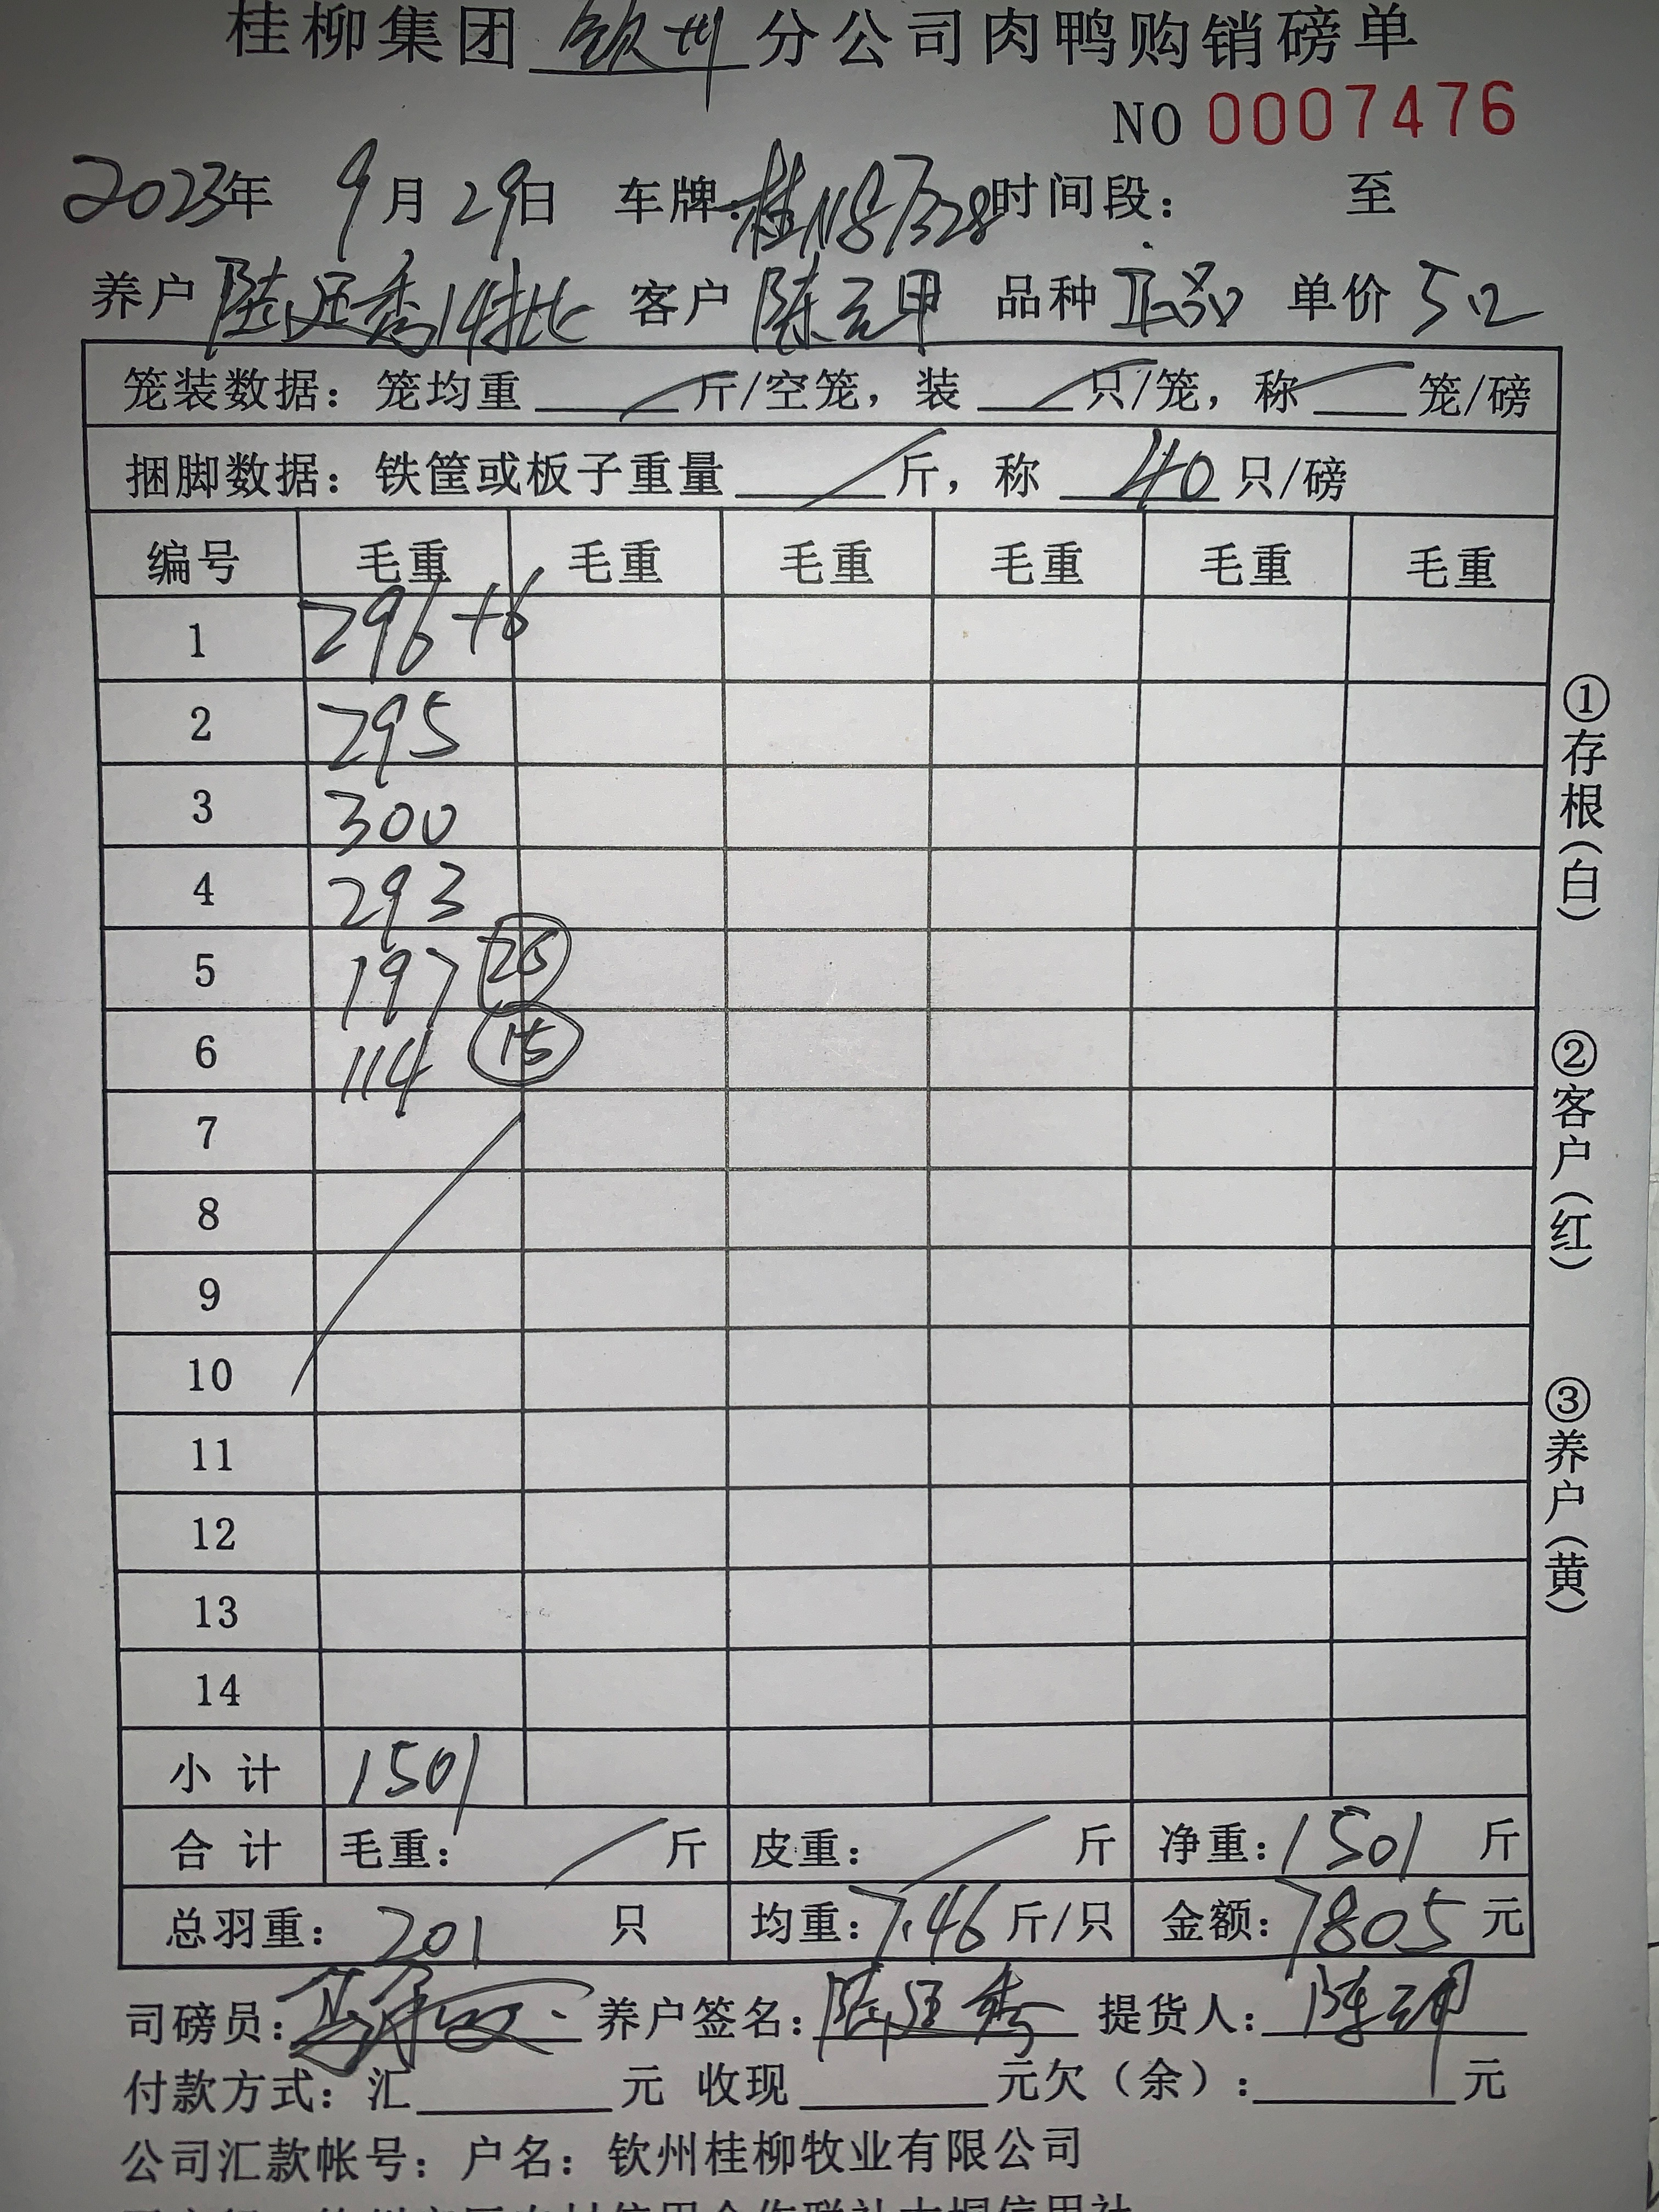 桂柳集团 钦州 分公司肉鸭购销磅单
NO 0007476
2023年 9月29日 车牌:桂N87328 时间段: 至
养户 陆廷秀14批 客户 陈云甲 品种 正品 单价 5.2
笼装数据: 笼均重 斤/空笼, 装 只/笼, 称 笼/磅
捆脚数据: 铁筐或板子重量 斤, 称 40 只/磅
编号 毛重 毛重 毛重 毛重 毛重 毛重
1 296+6
2 295
3 300
4 293
5 197 26
6 114 15
7
8
9
10
11
12
13
14
小计 1501
合计 毛重: 斤 皮重: 斤 净重: 1501 斤
总羽重: 201 只 均重: 7.46 斤/只 金额: 7805 元
司磅员: 养户签名: 陆廷秀 提货人: 陈云甲
付款方式: 汇 元 收现 元欠(余): 元
公司汇款帐号: 户名: 钦州桂柳牧业有限公司
①存根(白)
②客户(红)
③养户(黄)